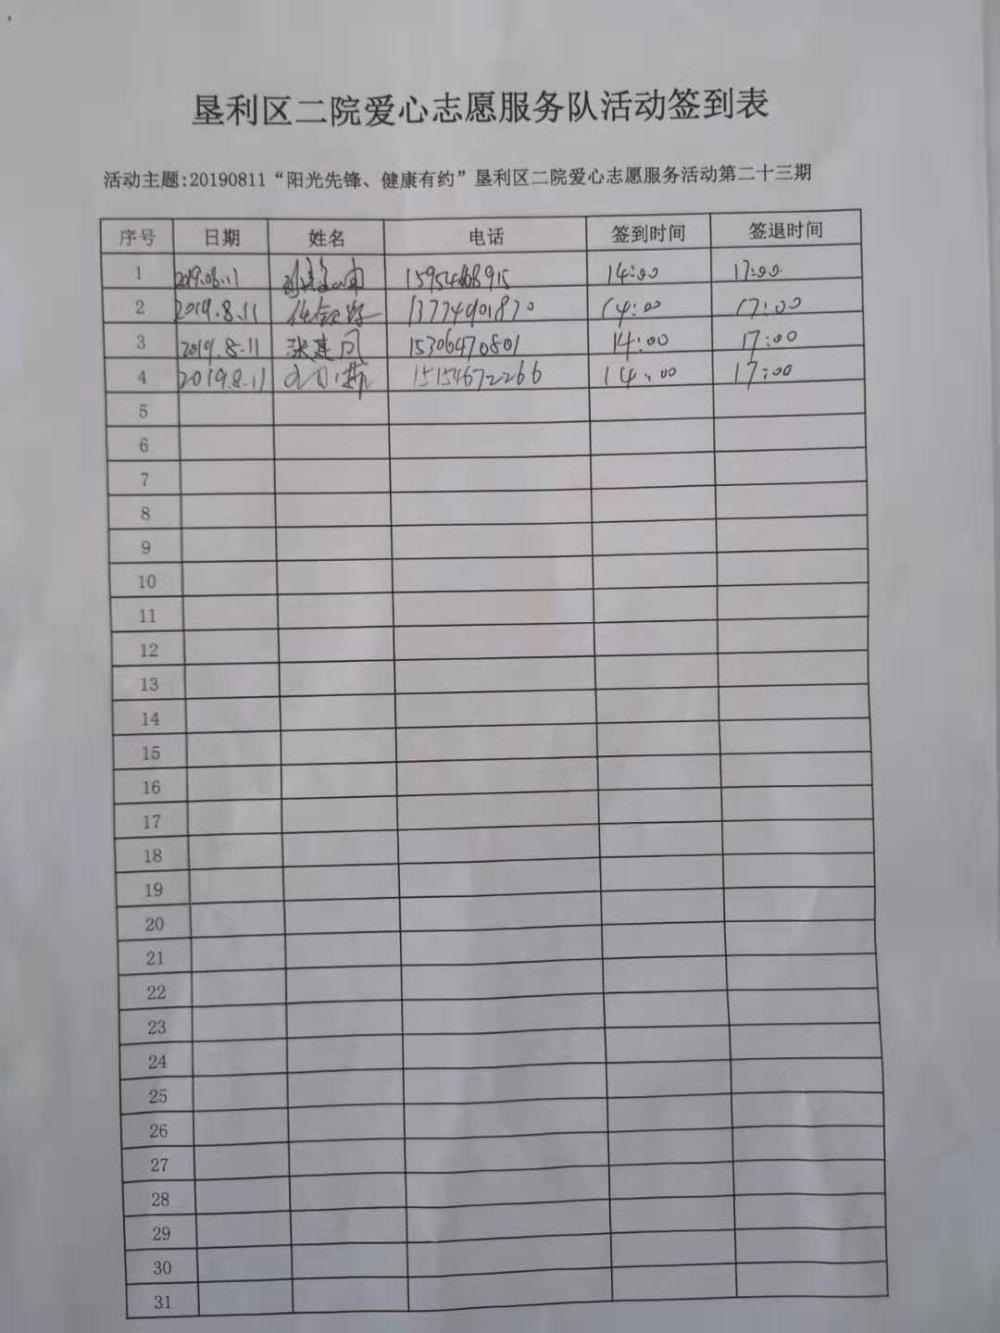 垦利区二院爱心志愿服务队活动签到表
活动主题:20190811“阳光先锋、健康有约”垦利区二院爱心志愿服务活动第二十三期
序号 日期 姓名 电话 签到时间 签退时间
1 2019.08.11 14:00 17:00
2 2019.8.11 13774901870 14:00 17:00
3 2019.8.11 张建凤 15306470801 14:00 17:00
4 2019.8.11 15154672266 14:00 17:00
5
6
7
8
9
10
11
12
13
14
15
16
17
18
19
20
21
22
23
24
25
26
27
28
29
30
31